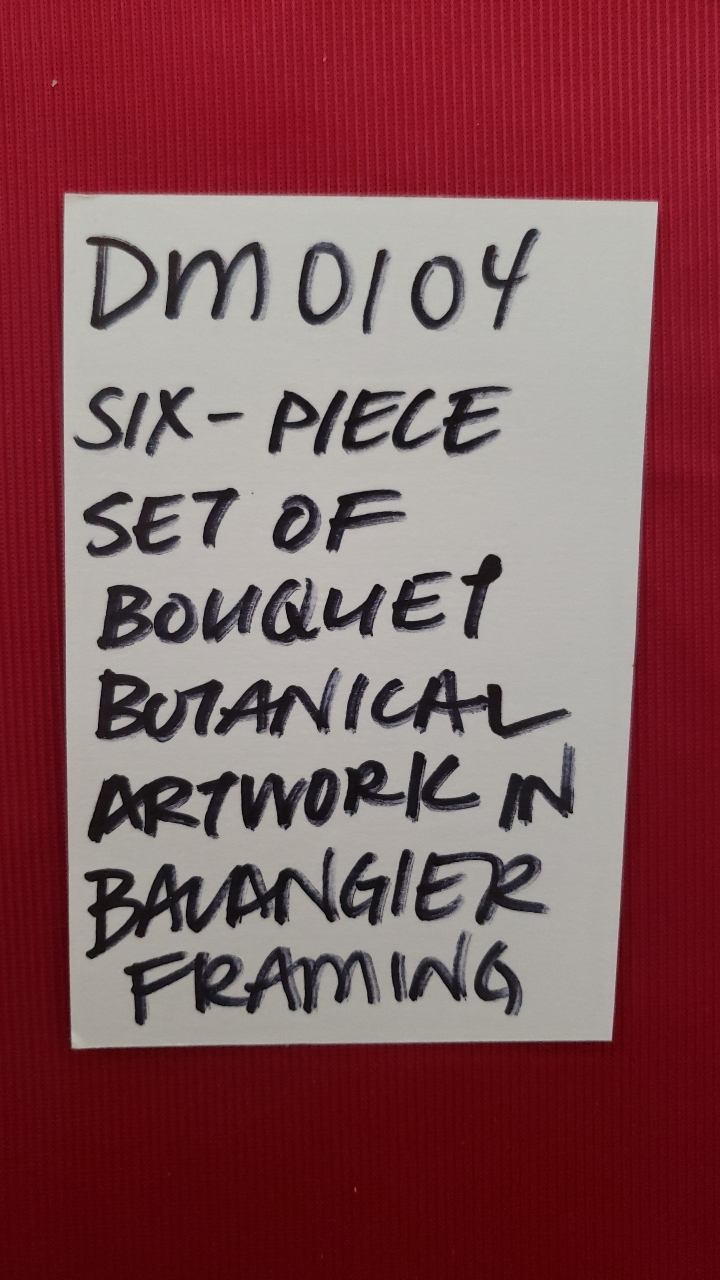 DM0104
SIX-PIECE
SET OF
BOUQUET
BOTANICAL
ARTWORK IN
BALANGIER
FRAMING